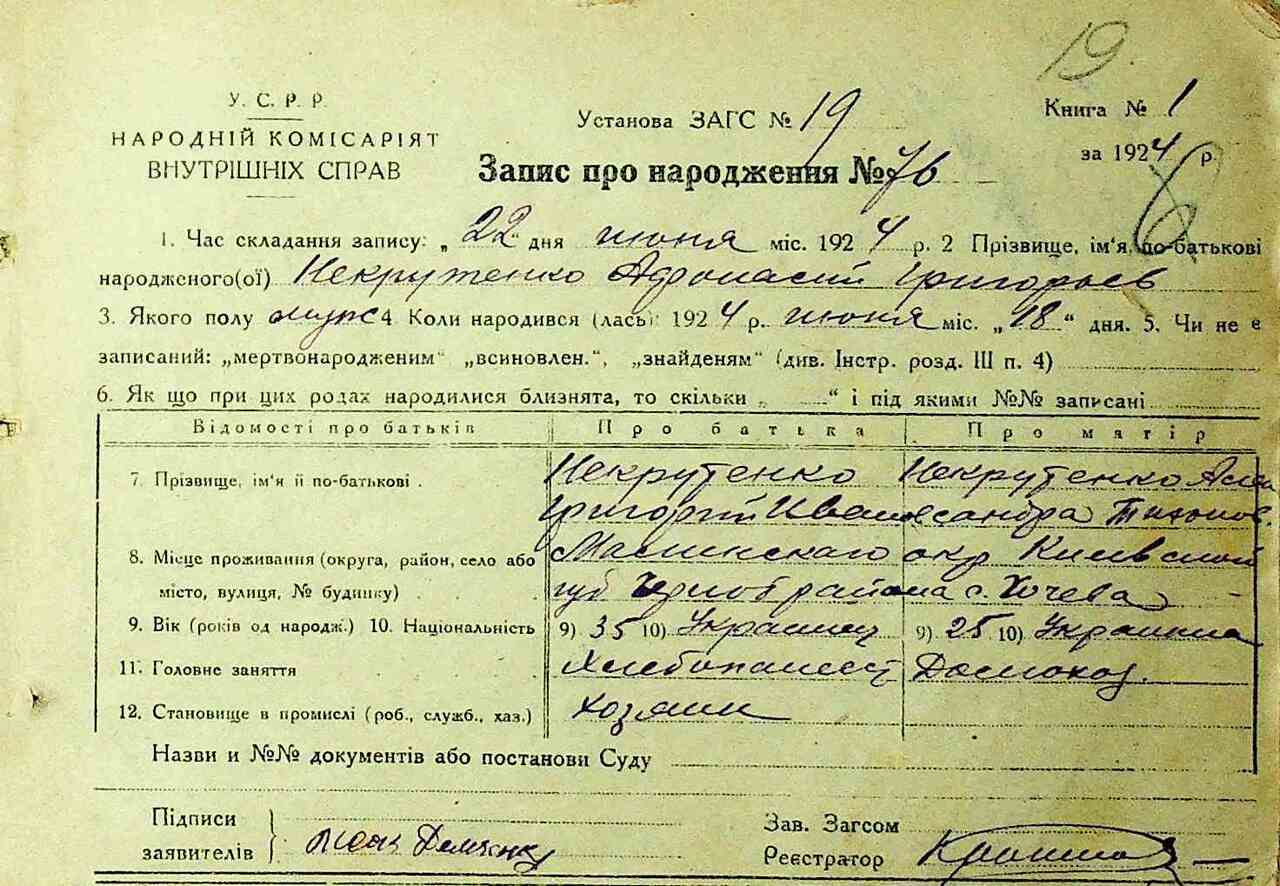 19.
У. С. Р. Р.
НАРОДНІЙ КОМІСАРІЯТ
ВНУТРІШНІХ СПРАВ
Установа ЗАГС № 19
Книга № 1
за 1924 р.
Запис про народження № 76
6
1. Час складання запису: „22“ дня июня міс. 1924 р. 2 Прізвище, ім'я, по-батькові
народженого(ої) Некрутенко Афонасий Григорьев
3. Якого полу муж 4 Коли народився (лась): 1924 р. июня міс. „18“ дня. 5. Чи не є
записаний: „мертвонародженим“ „всиновлен.“, „знайденям“ (див. Інстр. розд. III п. 4)
6. Як що при цих родах народилися близнята, то скільки „ “ і під якими №№ записані
Відомості про батьків Про батька Про матір
7. Прізвище, ім'я й по-батькові . Некрутенко Некрутенко Алек
Григорий Иван сандра Тихонов.
8. Місце проживання (округа, район, село або Малинскаго окр Киевской
місто, вулиця, № будинку) . . губ Черноб района с.
9. Вік (років од народж.) 10. Національність 9) 35 10) Украинец 9) 25 10) Украинка
11. Головне заняття Хлебопашест Домохоз.
12. Становище в промислі (роб., служб., хаз.) хозяин
Назви и №№ документів або постанови Суду
Підписи
заявителів
Зав. Загсом
Реєстратор